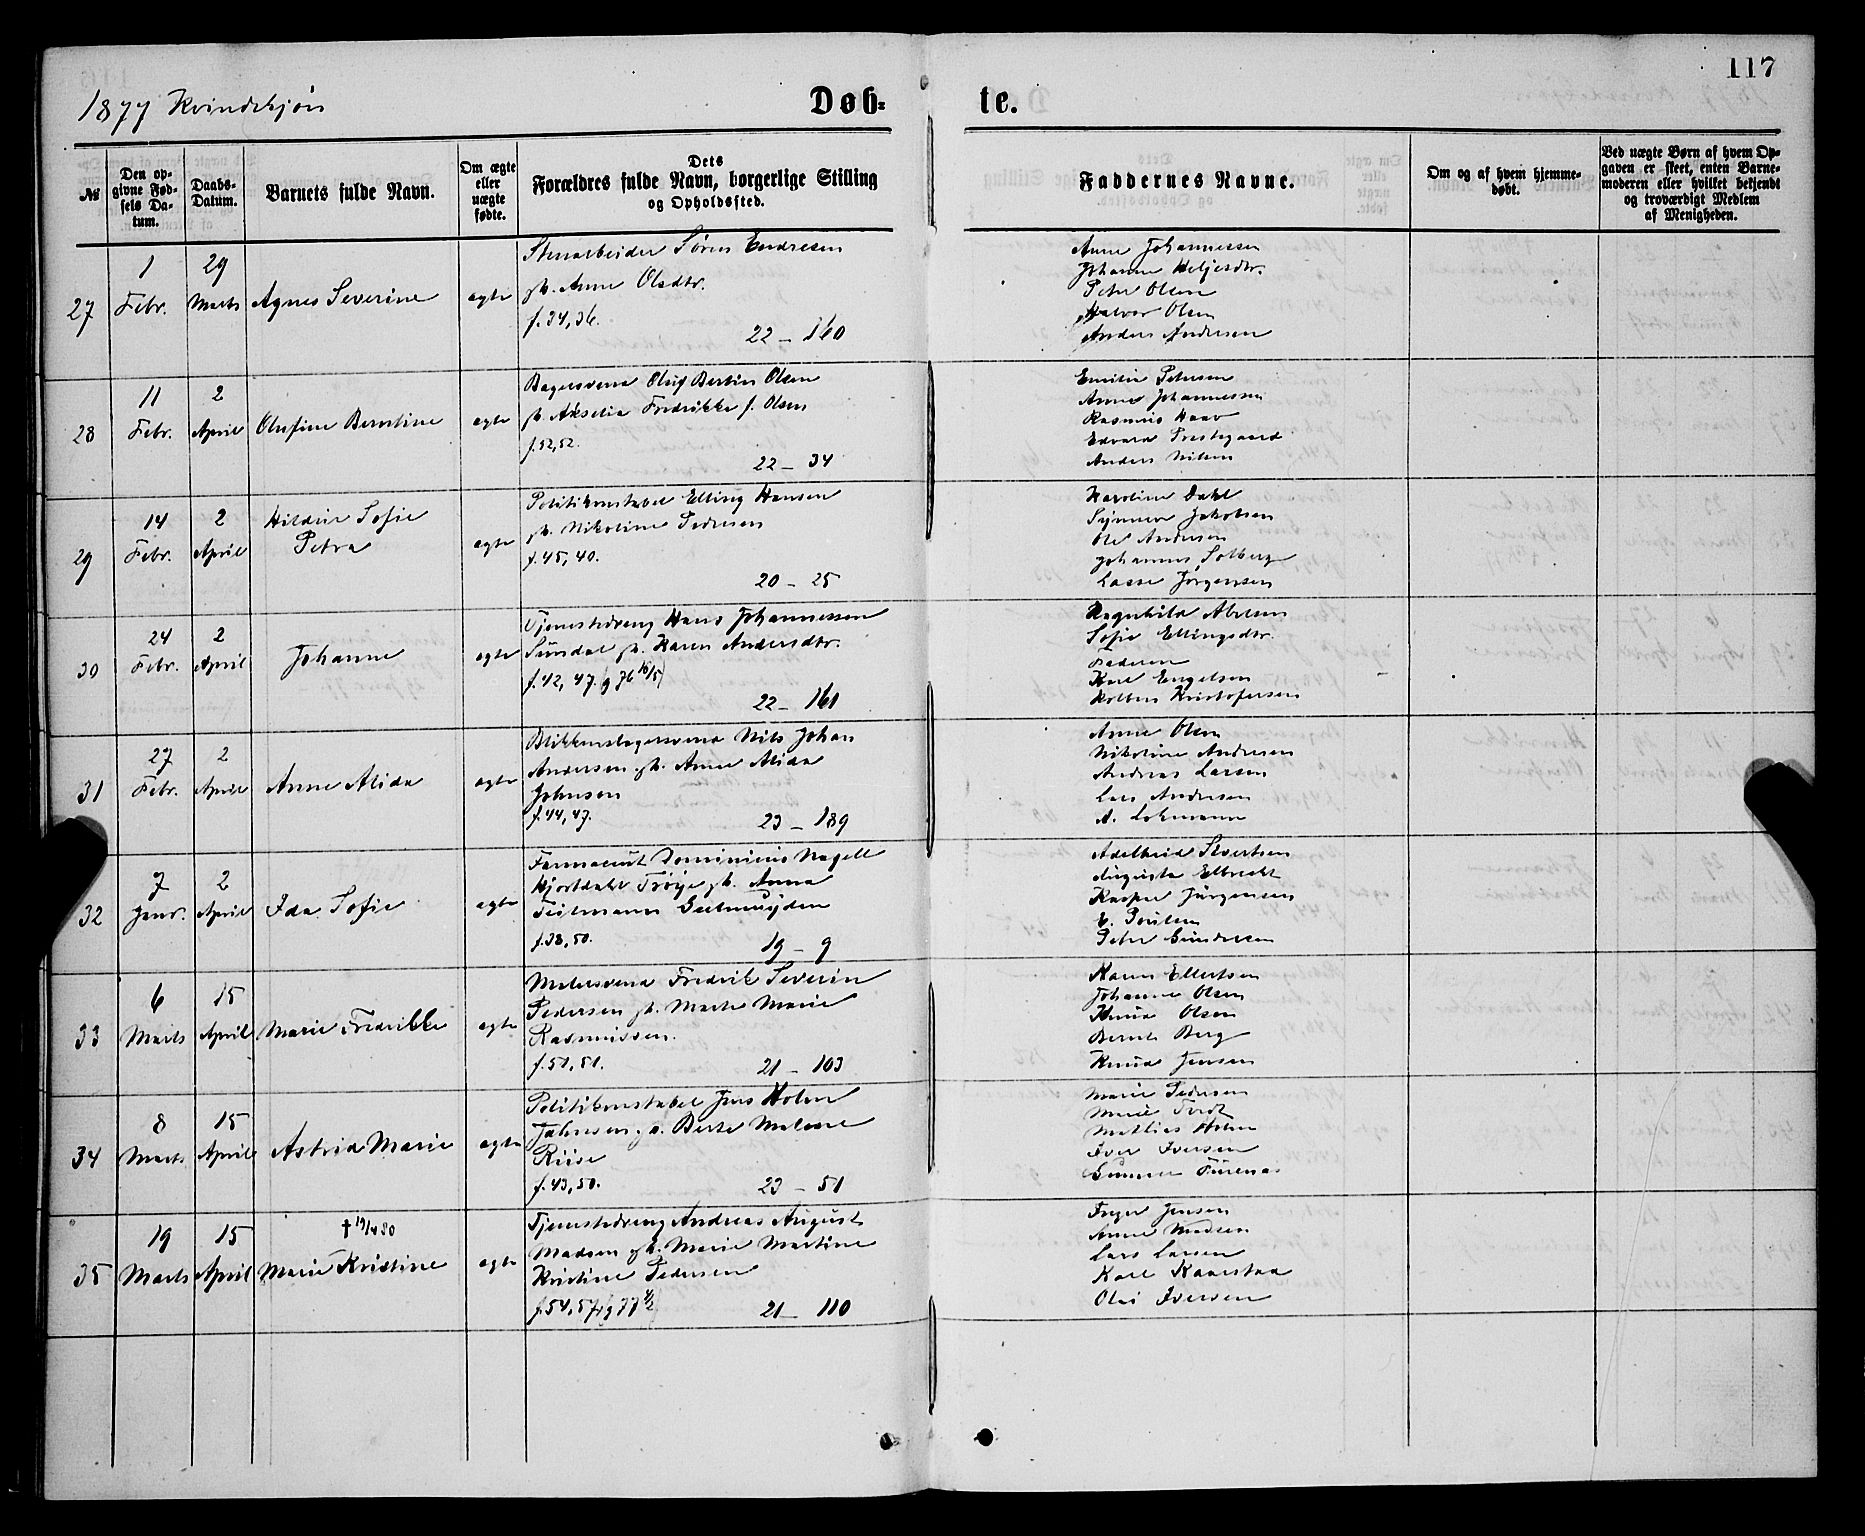 117
1877 Kvindekjøn
Døb= te.
№
Den opgivne Fødsels Datum.
Daabs-Datum.
Barnets fulde Navn.
Om ægte eller uægte fødte.
Dets Forældres fulde Navn, borgerlige Stilling og Opholdssted.
Faddernes Navne.
Om og af hvem hjemmedøbt.
Ved uægte Børn af hvem Opgaven er skeet, enten Barnemoderen eller hvilket bekjendt og troværdigt Medlem af Menigheden.
27
1 Febr.
29 Marts
Agnes Severine
ægte
Stenarbeider Søren Endresen
gh. Anne Olsdtr.
f. 34, 36.
22 - 160
Anne Johannessen
Johanne Heljesdtr.
Peter Olsen
Halvor Olsen
Anders Andersen
28
11 Febr.
2 April
Olufine Berntine
ægte
Bagersvend Oluf Bertin Olsen
gh. Akselia Fredrikke f. Olsen
f. 52, 52.
22 - 34
Emilie Petersen
Anne Johannessen
Rasmus Haav
Edvard Prestegaard
Anders Nilsen
29
14 Febr.
2 April
Hildur Sofie
Petra
ægte
Politikonstabel Elling Hansen
gh. Nikoline Pedersen
f. 45, 40.
20 - 25
Karoline Dahl
Synneva Jakobsen
Ole Andersen
Johannes Solberg
Lasse Jørgensen
30
24 Febr.
2 April
Johanne
ægte
Tjenestedreng Hans Johannessen
Sundal gh. Karen Andersdtr.
f. 42, 47. (g 76 16/5)
22 - 161
Ragnhild Abelsen
Sofie Ellingsdtr.
Faderen
Karl Engelsen
Kolben Kristofersen
31
27 Febr.
2 April
Anne Alida
ægte
Blikkenslagersvend Nils Johan
Andersen gh. Anne Alida
Johnsen
f. 44, 47.
23 - 189
Anne Olsen
Nikoline Andersen
Andreas Larsen
Lars Andersen
A. Lohmann
32
7 Janr.
2 April
Ida Sofie
ægte
Farmaceut Dominicus Nagell
Hjortdahl Trøye gh. Anna
Geelmuyden
f. 38, 50.
19 - 9
Adelheid Sivertsen
Augusta Elbrecht
Kasper Jürgensen
E. Poulsen
Peter Gundersen
33
6 Marts
15 April
Marie Fredrikke
ægte
Malersvend Fredrik Severin
Pedersen gh. Marte Marie
Rasmussen.
f. 51, 51.
21 - 103
Karen Ellertsen
Johanne Olsen
Knud Olsen
Bernt Berg
Knud Jensen
34
8 Marts
15 April
Astrid Marie
ægte
Politikonstabel Jens Holm
Johnsen gh. Berte Malene
Riise
f. 43, 50.
23 - 51
Marie Pedersen
Marie
Mathias Holm
Iver Iversen
Gunnar Furenas
35
19 Marts
15 April
† 19/4 80
Marie Kristine
ægte
Tjenestedreng Andreas August
Madsen gh. Marie Martine
Kristine Pedersen
f. 54, 57. (g 77 4/2)
21 - 110
Inger Jensen
Anne Madsen
Lars Larsen
Karl Kaarstad
Olai Iversen